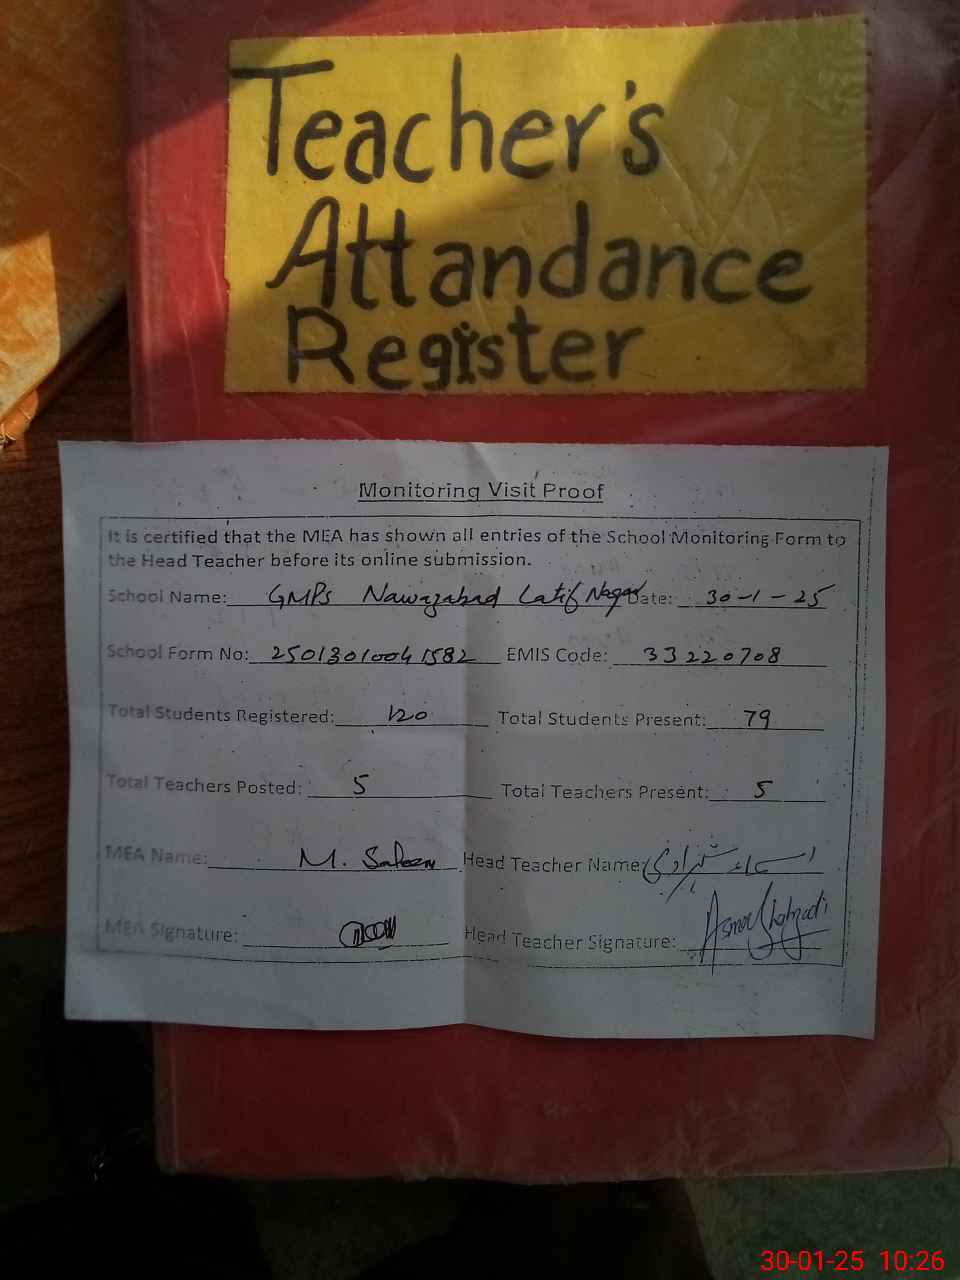 Teacher's
Attandance
Register
Monitoring Visit Proof
It is certified that the MEA has shown all entries of the School Monitoring Form to
the Head Teacher before its online submission.
School Name: GMPS Nawazabad Latif Nagar Date: 30-1-25
School Form No: 25013010041582 EMIS Code: 33220708
Total Students Registered: 120 Total Students Present: 79
Total Teachers Posted: 5 Total Teachers Present: 5
MEA Name: M. Saleem Head Teacher Name: اسماء شہزادی
MEA Signature: Head Teacher Signature: Asma Shahzadi
30-01-25 10:26